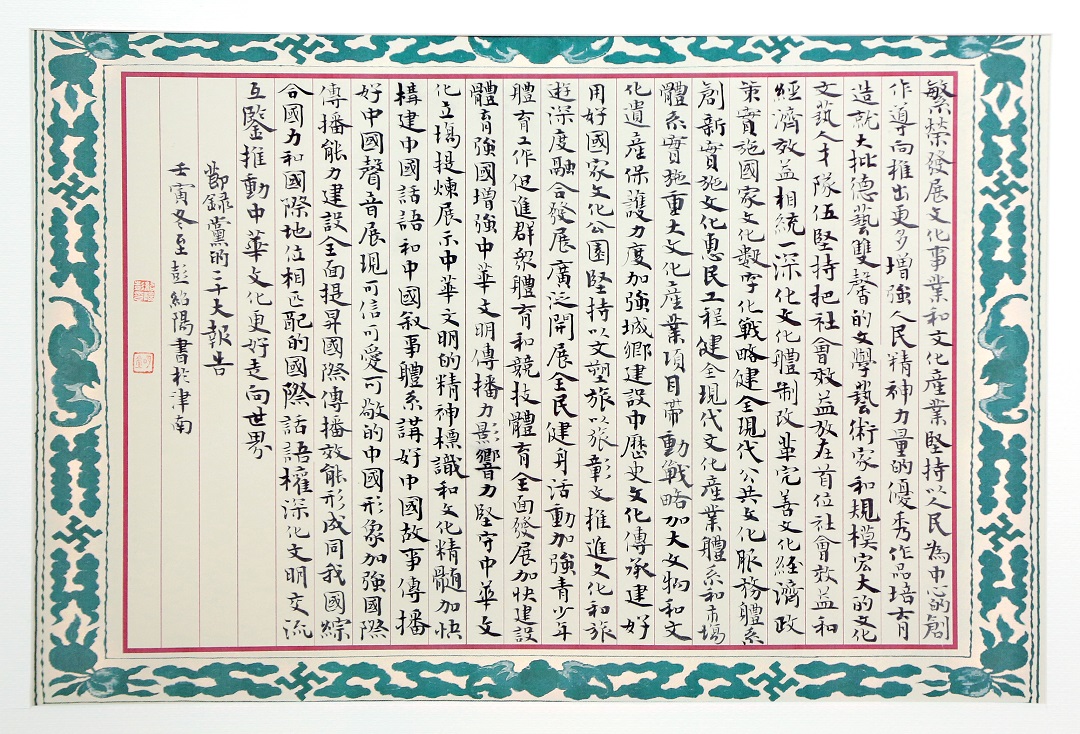 繁榮發展文化事業和文化產業堅持以人民為中心的創
作導向推出更多增強人民精神力量的優秀作品培育
造就大批德藝雙馨的文學藝術家和規模宏大的文化
文藝人才隊伍堅持把社會效益放在首位社會效益和
經濟效益相統一深化文化體制改革完善文化經濟政
策實施國家文化數字化戰略健全現代公共文化服務體系
創新實施文化惠民工程健全現代文化產業體系和市場
體系實施重大文化產業項目帶動戰略加大文物和文
化遺產保護力度加強城鄉建設中歷史文化傳承建好
用好國家文化公園堅持以文塑旅以旅彰文推進文化和旅
遊深度融合發展廣泛開展全民健身活動加強青少年
體育工作促進群眾體育和競技體育全面發展加快建設
體育強國增強中華文明傳播力影響力堅守中華文
化立場提煉展示中華文明的精神標識和文化精髓加快
構建中國話語和中國敘事體系講好中國故事傳播
好中國聲音展現可信可愛可敬的中國形象加強國際
傳播能力建設全面提昇國際傳播效能形成同我國綜
合國力和國際地位相匹配的國際話語權深化文明交流
互鑒推動中華文化更好走向世界
節錄黨的二十大報告
壬寅冬至彭紹陽書於津南